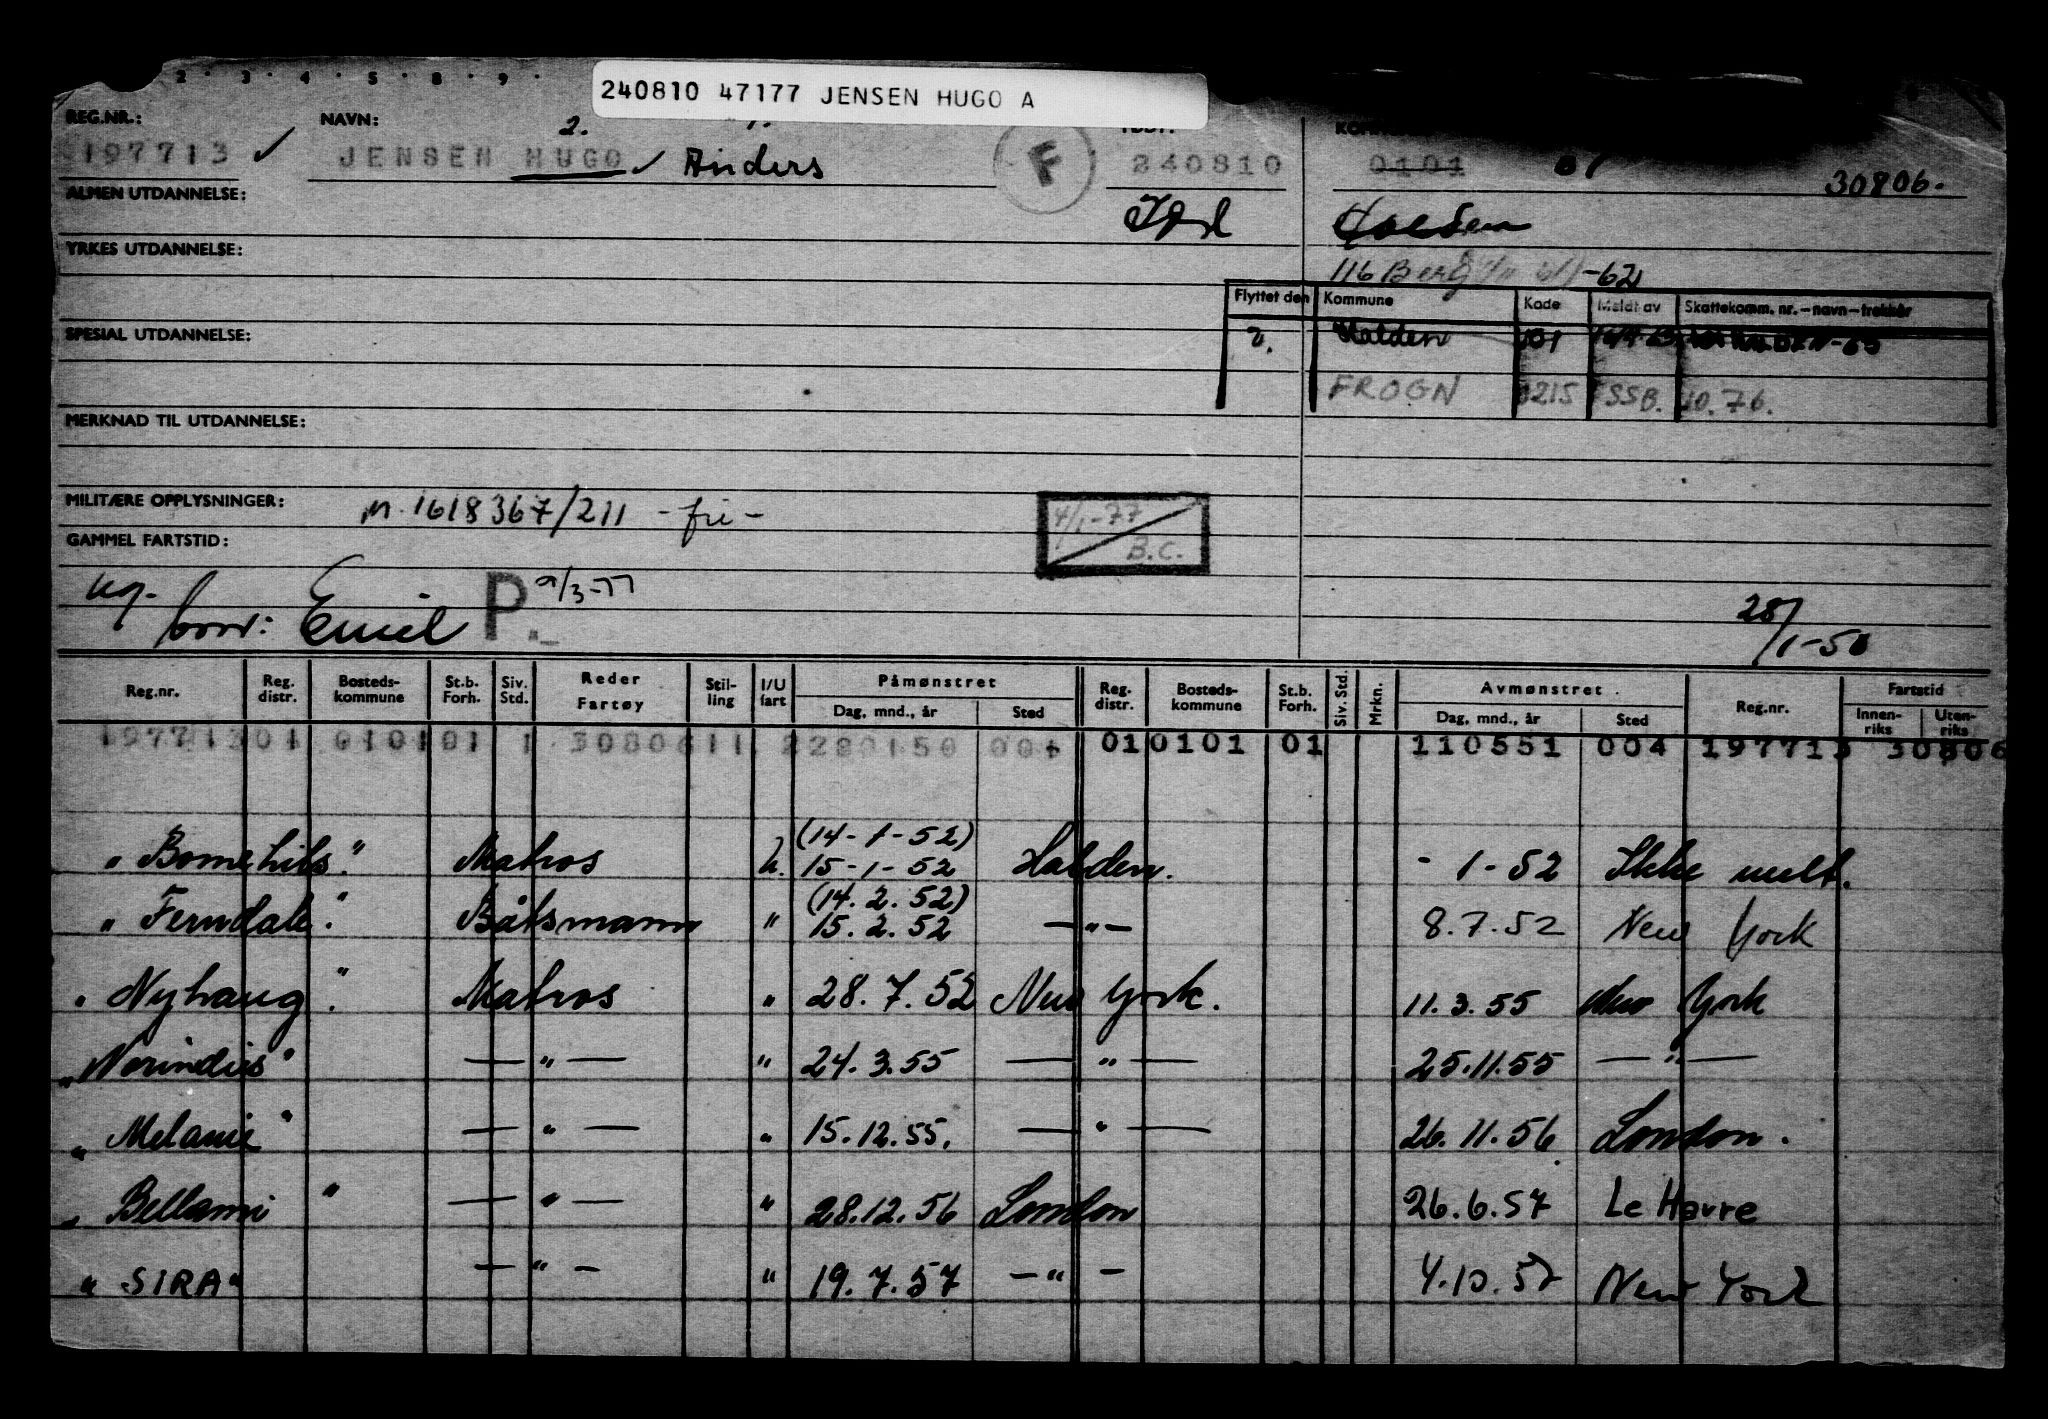 2 · 3 · 4 · 5 · 8 · 9 ·
240810 47177 JENSEN HUGO A
REG.NR.:
NAVN:
2.
197713 ✓
JENSEN HUGO ✓ Anders
F
240810
0101
01
30806.
ALMEN UTDANNELSE:
Halden
YRKES UTDANNELSE:
116 Berg -62
Flyttet den Kommune Kode Meldt av Skattekomm. nr. – navn – trekkår
SPESIAL UTDANNELSE:
2. Halden 101
FROGN 0215 SSB. 10.76.
MERKNAD TIL UTDANNELSE:
MILITÆRE OPPLYSNINGER: M. 1618367/211 - fri -
4/1-77
B.C.
GAMMEL FARTSTID:
ug. P 9/3-77
forv: Emil
28/1-50
Reg.nr. Reg. distr. Bosteds-kommune St.b. Forh. Siv. Std. Reder Fartøy Stil-ling I/U fart Påmønstret Dag, mnd., år Sted Reg. distr. Bosteds-kommune St.b. Forh. Siv. Std. Mrkn. Avmønstret Dag, mnd., år Sted Reg.nr. Fartstid Innen-riks Uten-riks
197713 01 0101 01 1 30806 11 2 280150 004 01 0101 01 110551 004 197713 30806
(14-1-52)
" Bomehils." Matros u. 15-1-52 Halden. - 1-52 Ikke meld.
(14.2.52)
" Ferndale." Båtsmann " 15.2.52 — " — 8.7.52 New York
" Nyhaug." Matros " 28.7.52 New York. 11.3.55 New York
" Norindies" — " — " 24.3.55 — " — 25.11.55 — " —
" Melanie" — " — " 15.12.55. — " — 26.11.56 London.
" Bellami " — " — " 28.12.56 London 26.6.57 Le Havre
" SIRA" — " — " 19.7.57 — " — 4.10.57 New York